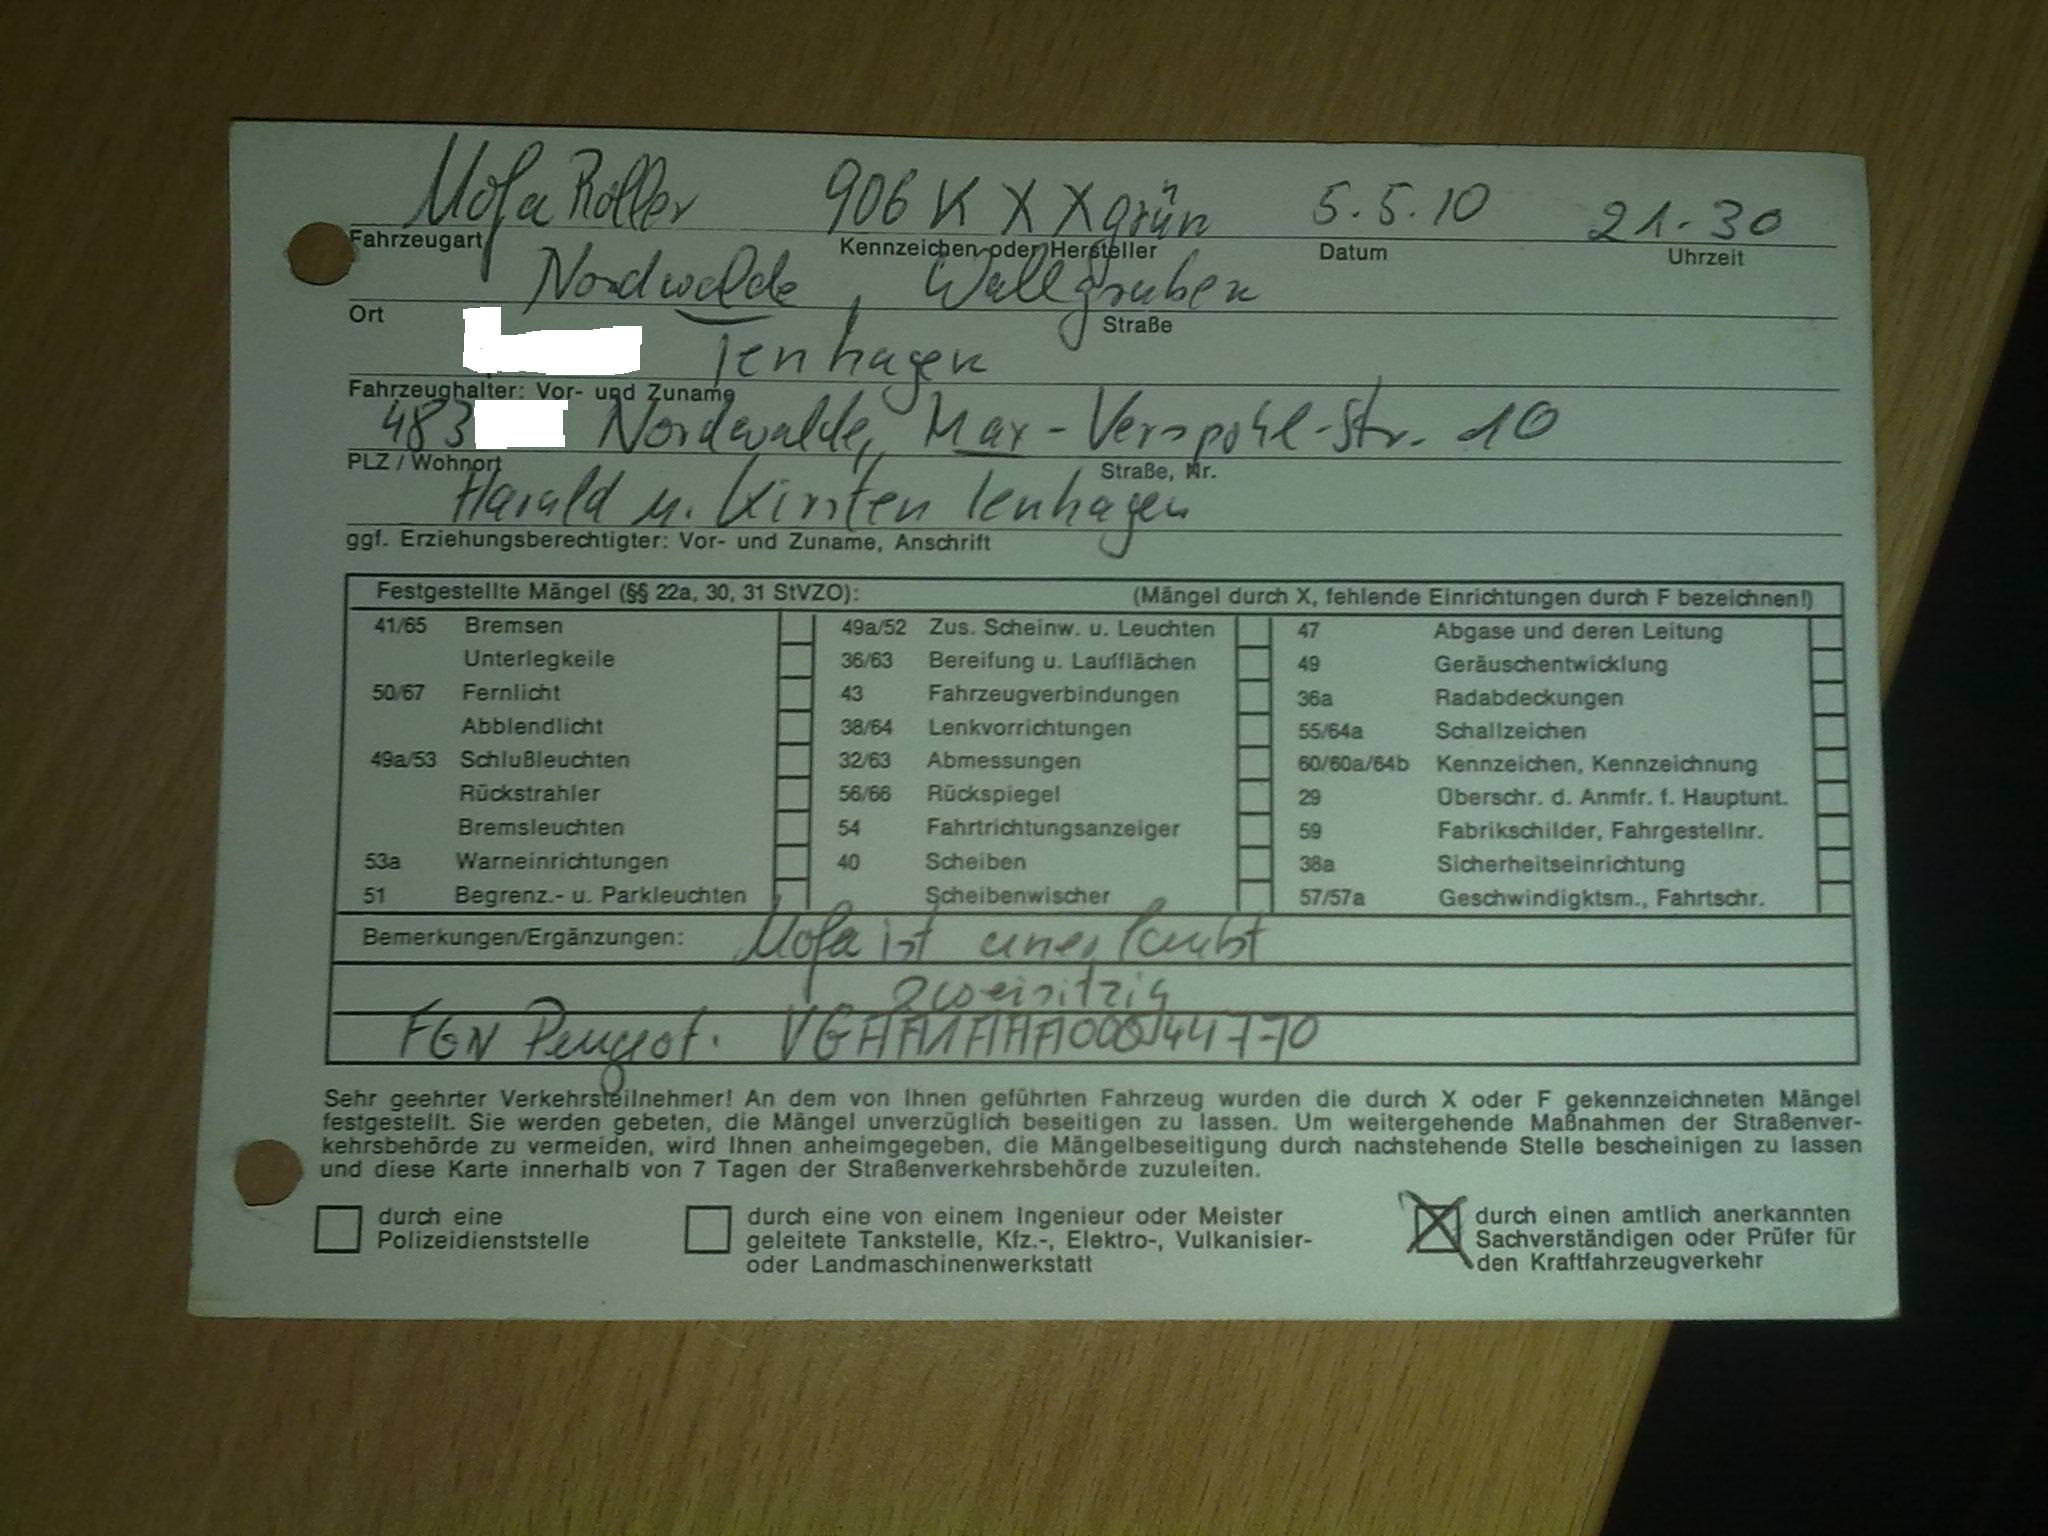 Mofa Roller 906 K X X grün 5.5.10 21.30
Fahrzeugart Kennzeichen oder Hersteller Datum Uhrzeit
Nordwalde, Wallgraben
Ort Straße
Ienhagen
Fahrzeughalter: Vor- und Zuname
483 Nordwalde, Max-Verspohl-Str. 10
PLZ / Wohnort Straße, Nr.
Harald u. Kirsten Ienhagen
ggf. Erziehungsberechtigter: Vor- und Zuname, Anschrift
Festgestellte Mängel (§§ 22a, 30, 31 StVZO): (Mängel durch X, fehlende Einrichtungen durch F bezeichnen!)
41/65 Bremsen 49a/52 Zus. Scheinw. u. Leuchten 47 Abgase und deren Leitung
Unterlegkeile 36/63 Bereifung u. Laufflächen 49 Geräuschentwicklung
50/67 Fernlicht 43 Fahrzeugverbindungen 36a Radabdeckungen
Abblendlicht 38/64 Lenkvorrichtungen 55/64a Schallzeichen
49a/53 Schlußleuchten 32/63 Abmessungen 60/60a/64b Kennzeichen, Kennzeichnung
Rückstrahler 56/66 Rückspiegel 29 Überschr. d. Anmfr. f. Hauptunt.
Bremsleuchten 54 Fahrtrichtungsanzeiger 59 Fabrikschilder, Fahrgestellnr.
53a Warneinrichtungen 40 Scheiben 38a Sicherheitseinrichtung
51 Begrenz.- u. Parkleuchten Scheibenwischer 57/57a Geschwindigktsm., Fahrtschr.
Bemerkungen/Ergänzungen: Mofa ist unerlaubt
zweisitzig
FGN Peugot.
Sehr geehrter Verkehrsteilnehmer! An dem von Ihnen geführten Fahrzeug wurden die durch X oder F gekennzeichneten Mängel
festgestellt. Sie werden gebeten, die Mängel unverzüglich beseitigen zu lassen. Um weitergehende Maßnahmen der Straßenver-
kehrsbehörde zu vermeiden, wird Ihnen anheimgegeben, die Mängelbeseitigung durch nachstehende Stelle bescheinigen zu lassen
und diese Karte innerhalb von 7 Tagen der Straßenverkehrsbehörde zuzuleiten.
durch eine durch eine von einem Ingenieur oder Meister durch einen amtlich anerkannten
Polizeidienststelle geleitete Tankstelle, Kfz.-, Elektro-, Vulkanisier- Sachverständigen oder Prüfer für
oder Landmaschinenwerkstatt den Kraftfahrzeugverkehr